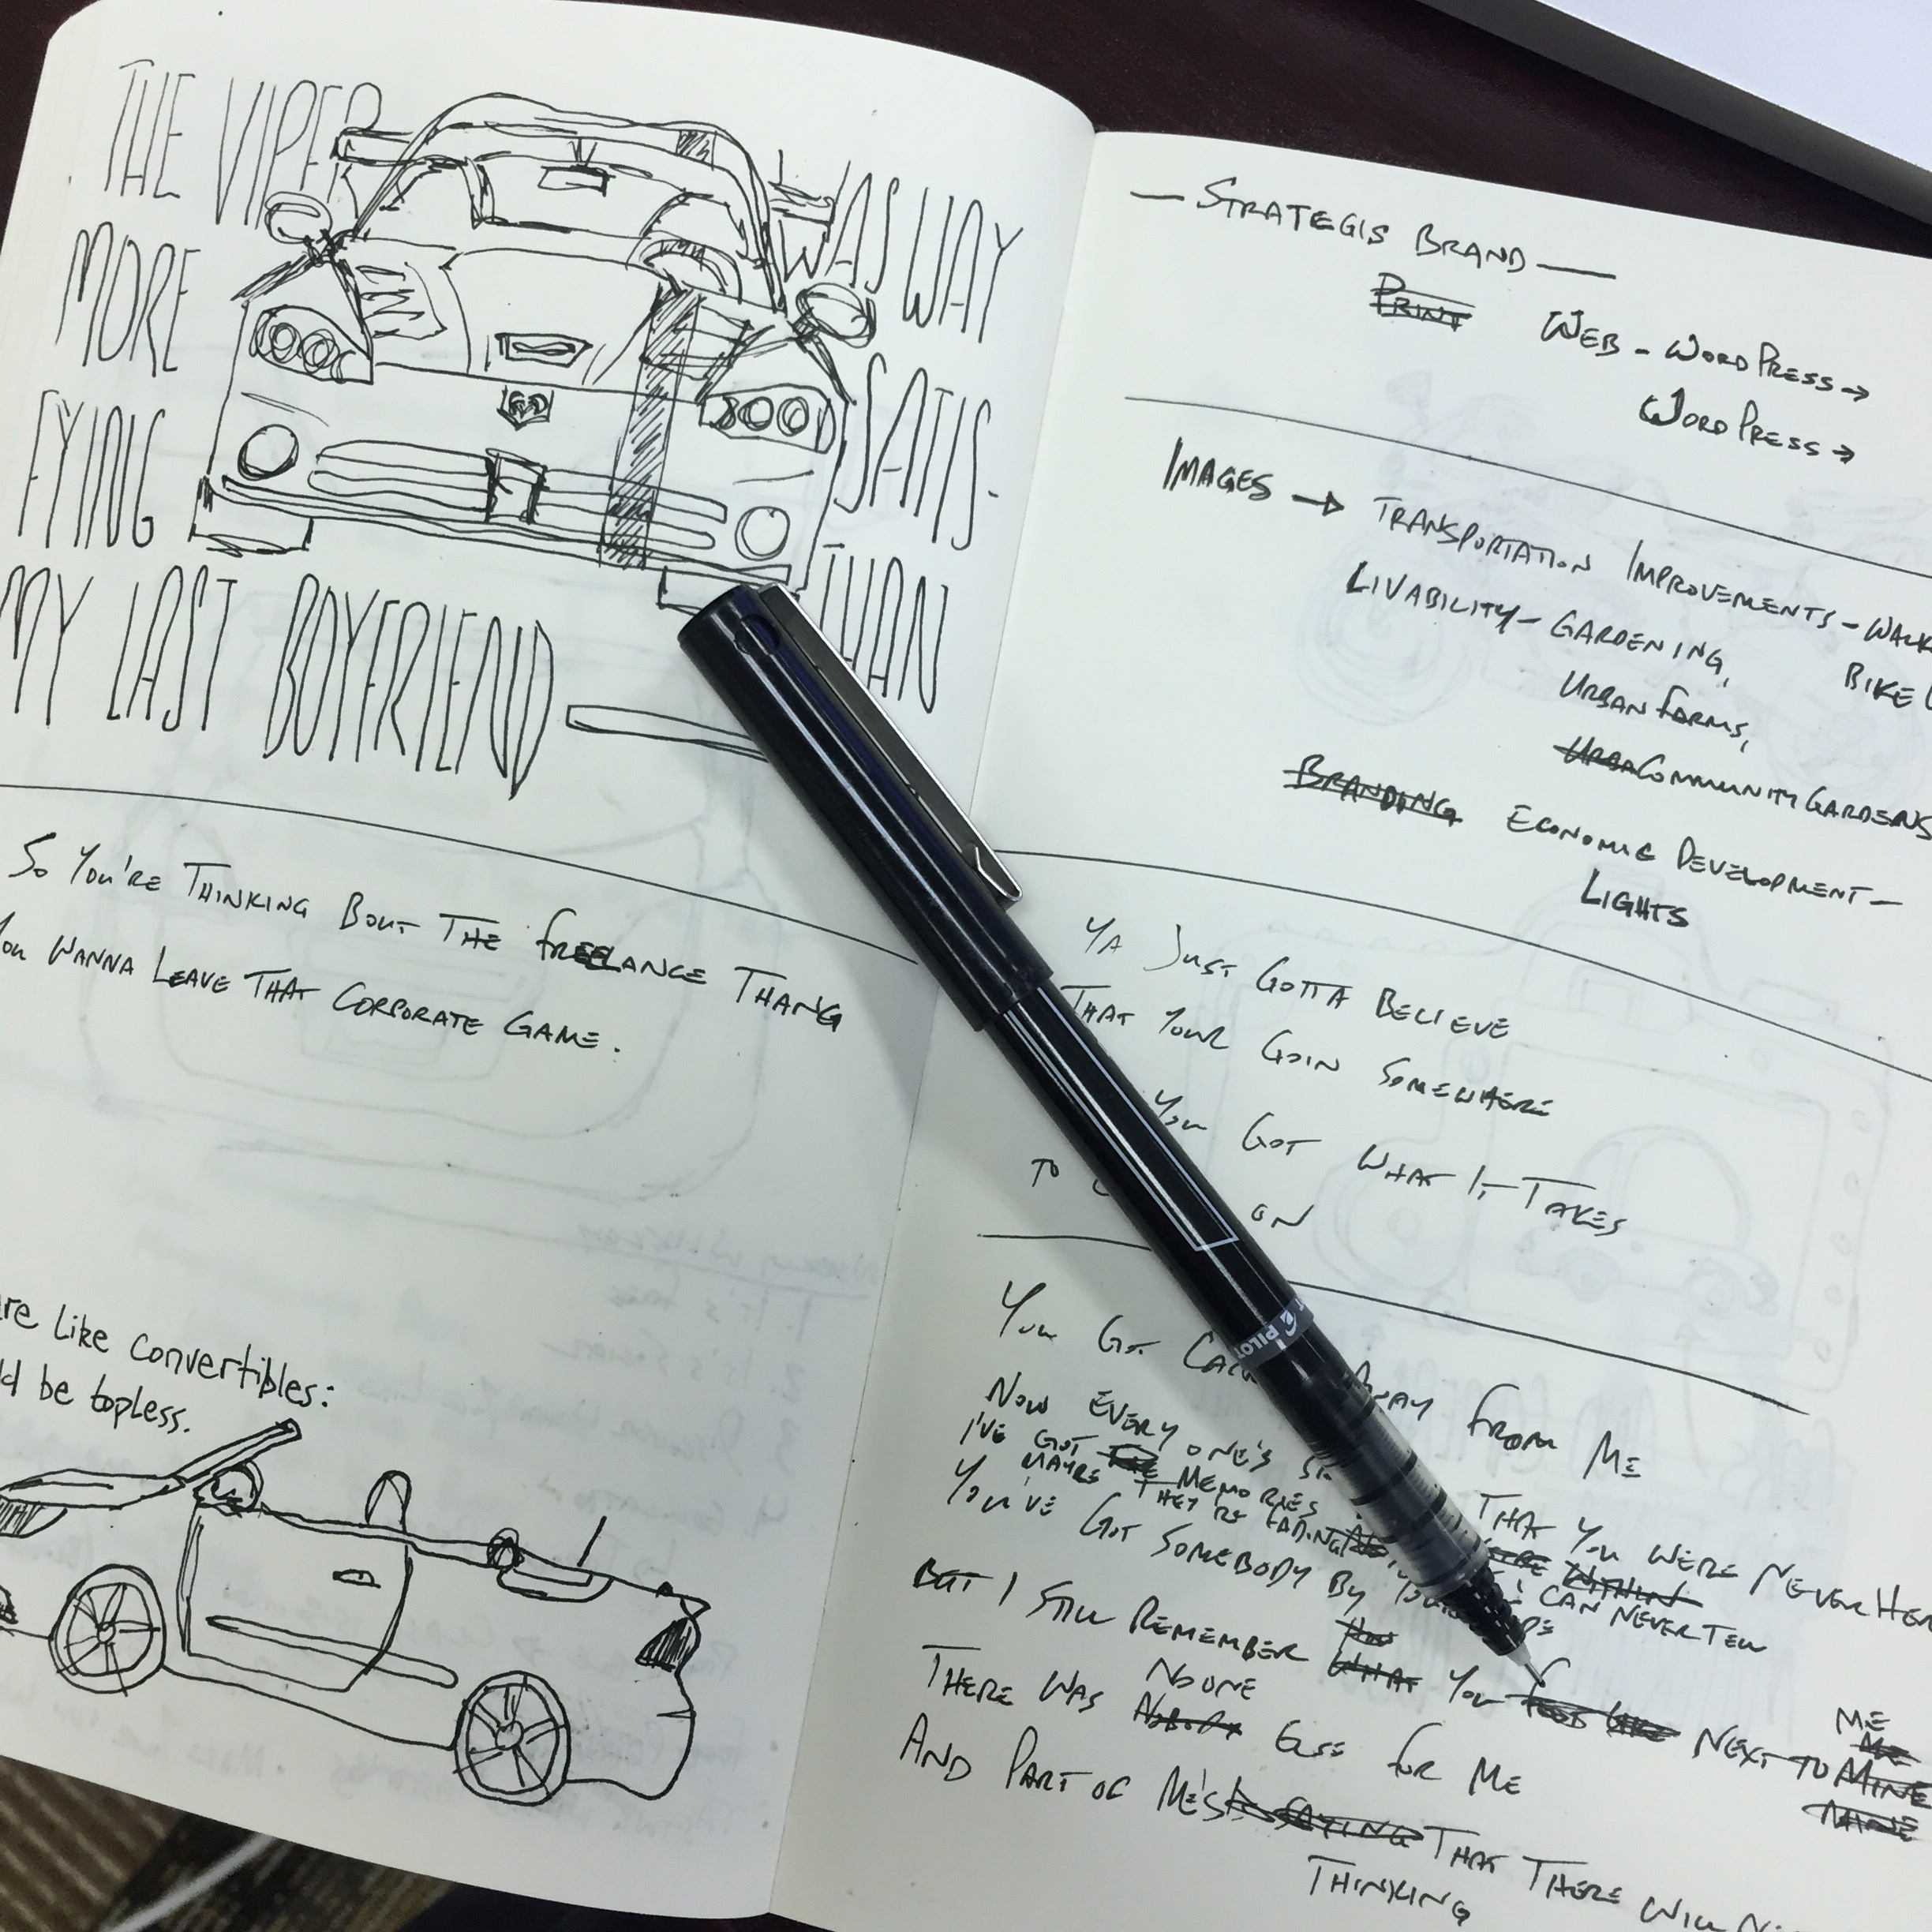 THE VIPER WAS WAY
MORE SATIS-
FYING THAN
MY LAST BOYFRIEND
SO YOU'RE THINKING BOUT THE FREELANCE THANG
YOU WANNA LEAVE THAT CORPORATE GAME.
LIKE CONVERTIBLES:
BE TOPLESS.
— STRATEGIS BRAND —
PRINT WEB - WORDPRESS →
WORDPRESS →
IMAGES → TRANSPORTATION IMPROVEMENTS - WALK
LIVABILITY - GARDENING, BIKE
URBAN FARMS,
URBA COMMUNITY GARDENS
BRANDING ECONOMIC DEVELOPMENT -
LIGHTS
YA JUST GOTTA BELIEVE
THAT YOUR GOIN SOMEWHERE
YOU GOT WHAT IT TAKES
TO ON
YOU GOT FROM ME
NOW EVERYONE'S THAT YOU WERE NEVER
I'VE GOT MEMORIES WITHIN
MAYBE THEY'RE FADING I CAN NEVER TELL
YOU'VE GOT SOMEBODY BY
BUT I STILL REMEMBER WHAT YOU NEXT TO MINE
ME
ME
MINE
NO ONE
THERE WAS NOBODY ELSE FOR ME
AND PART OF ME'S IS SAYING THAT THERE WILL
THINKING
PILOT